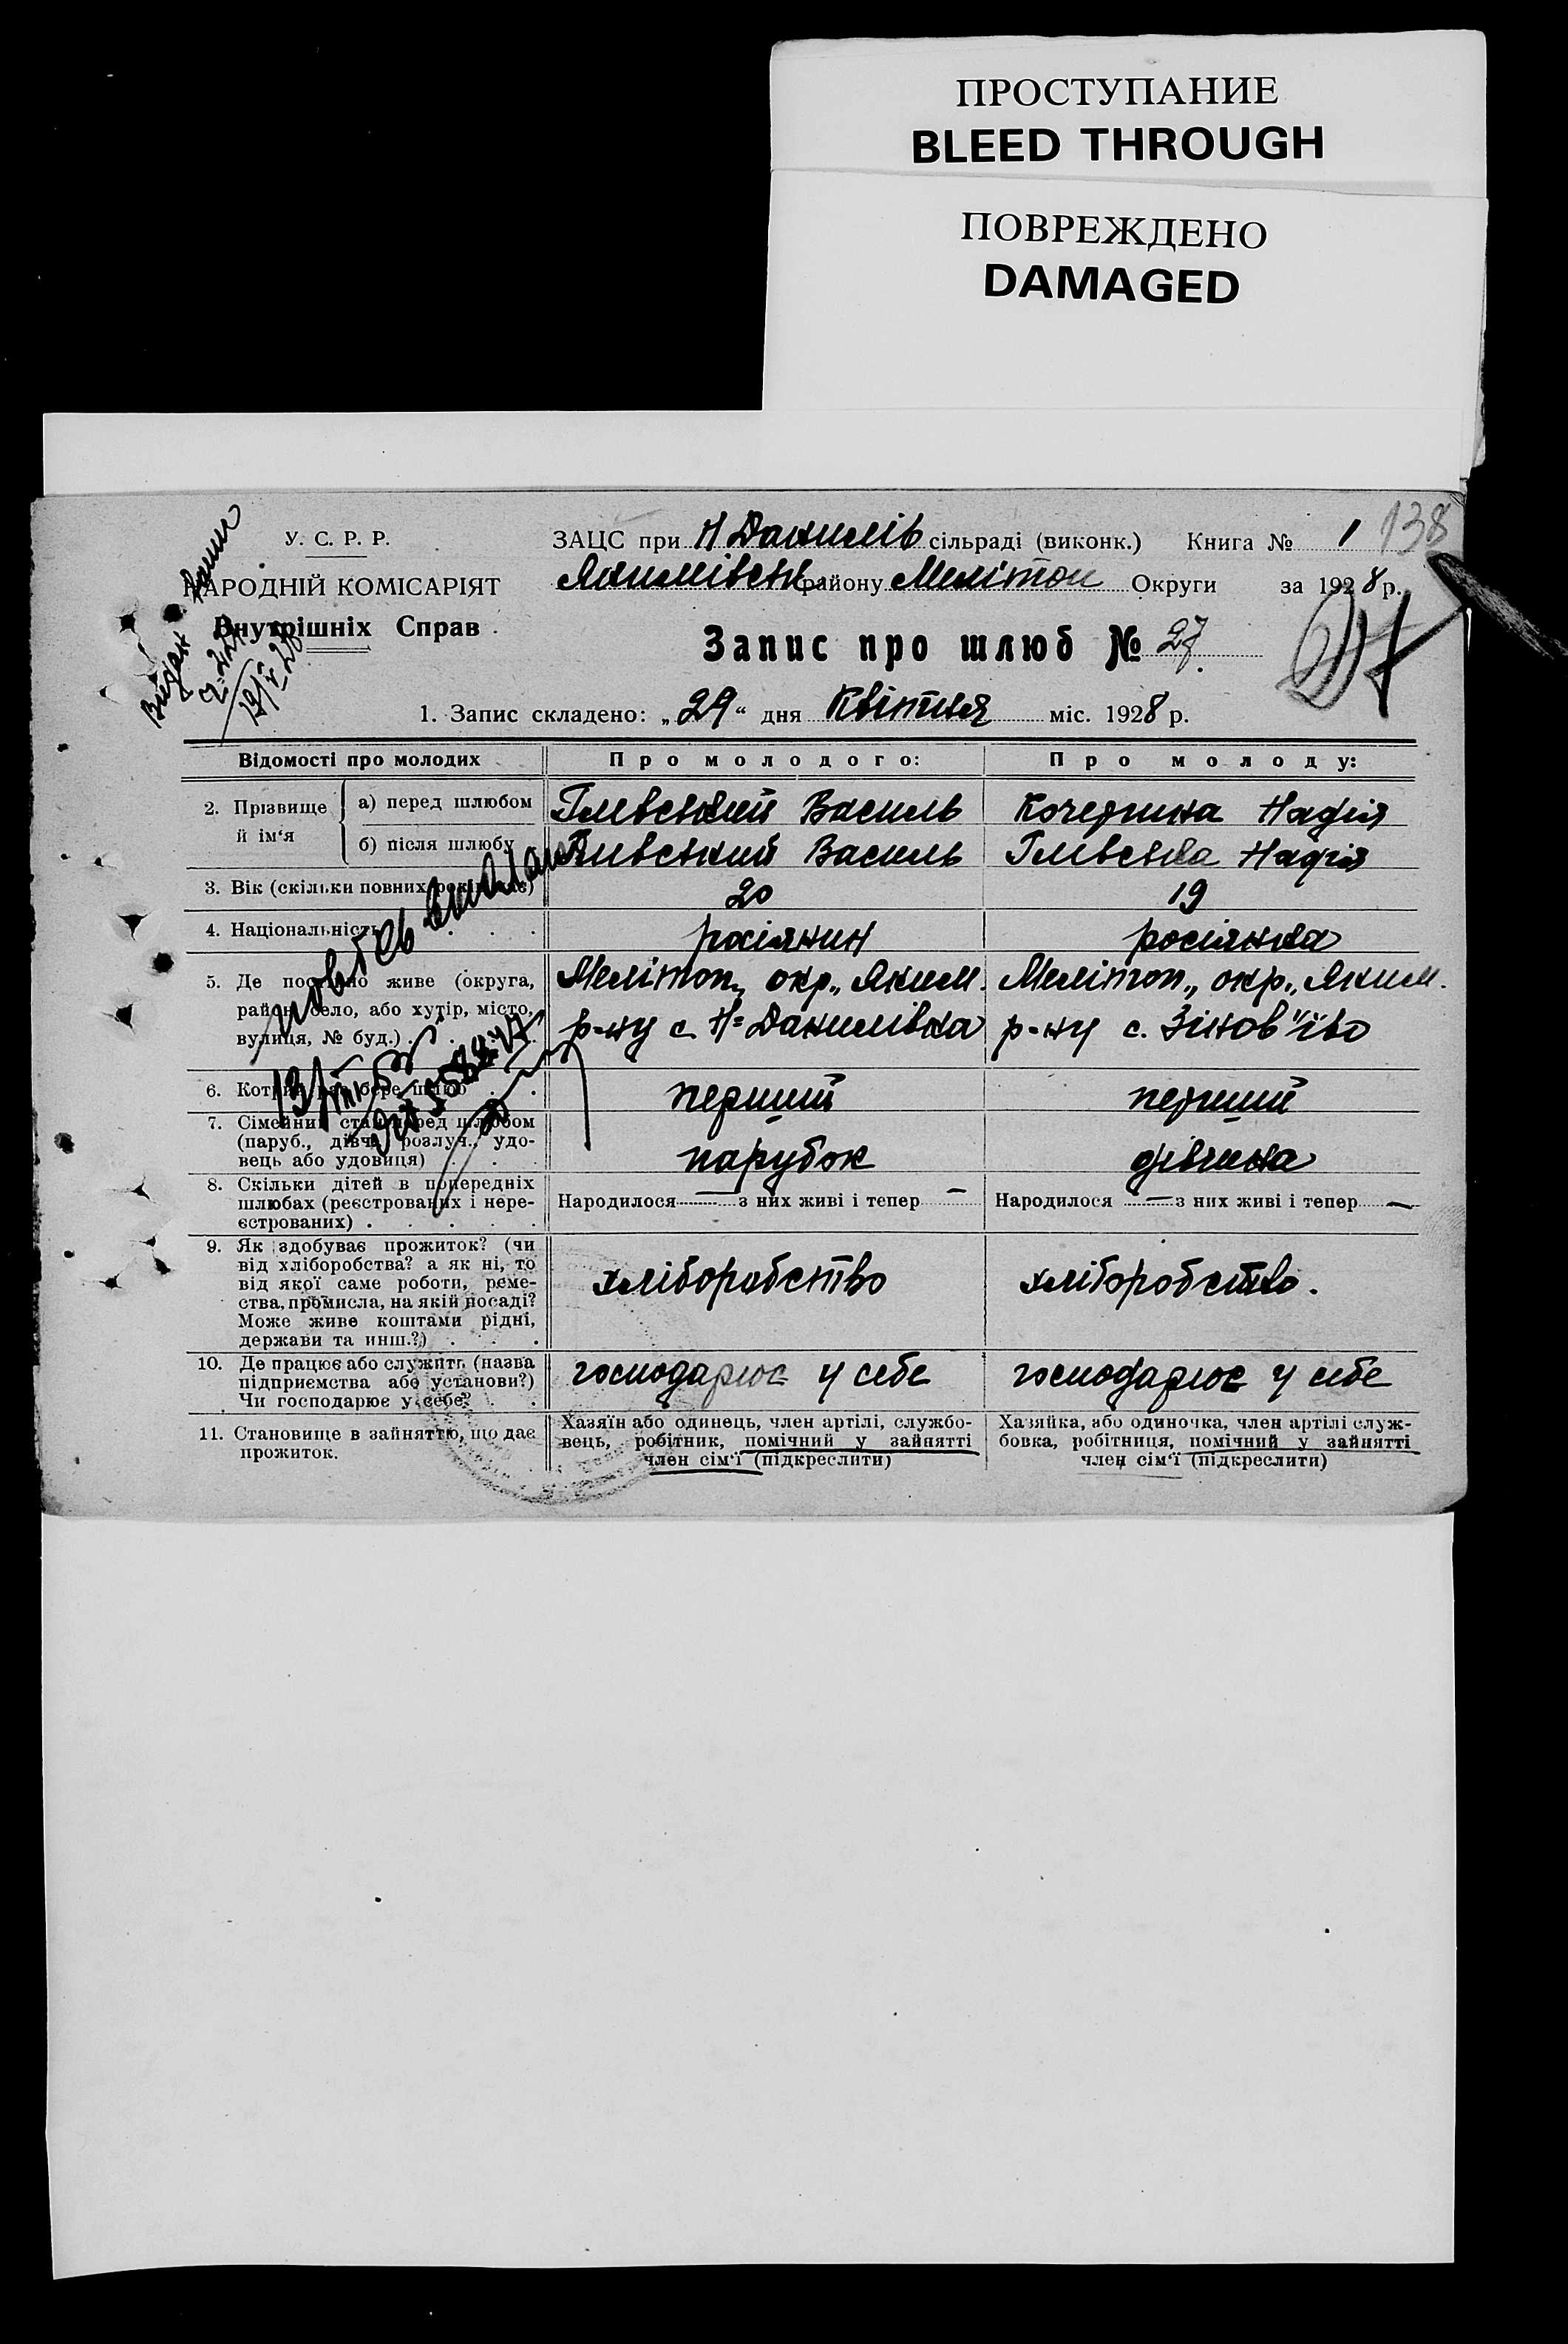 ПРОСТУПАНИЕ
BLEED THROUGH
ПОВРЕЖДЕНО
DAMAGED
138
У. С. Р. Р.
НАРОДНІЙ КОМІСАРІЯТ
Внутрішніх Справ
ЗАЦС при Н Данилів сільраді (виконк.) Книга № 1
Якимівськ району Меліточ Округи за 1928 р.
Запис про шлюб № 27
1. Запис складено: „29“ дня Квітня міс. 1928 р.
Відомості про молодих Про молодого: Про молоду:
2. Прізвище й ім‘я
а) перед шлюбом Глівський Василь Кочергина Надія
б) після шлюбу Глівський Василь Глівська Надія
3. Вік (скільки повних років має) 20 19
4. Національність росіянин росіянка
5. Де постійно живе (округа,
район, село, або хутір, місто,
вулиця, № буд.)
Меліточ„ окр„ Яким.
р-ну с Н=Данилівка
Меліточ„ окр„ Яким.
р-ну с. Зінов"їво
6. Котрий раз бере шлюб перший перший
7. Сімейний стан перед шлюбом
(паруб., дівч., розлуч., удо-
вець або удовиця) парубок дівчина
8. Скільки дітей в попередніх
шлюбах (реєстрованих і нере-
єстрованих)
Народилося — з них живі і тепер — Народилося — з них живі і тепер —
9. Як здобуває прожиток? (чи
від хліборобства? а як ні, то
від якої саме роботи, реме-
ства, промисла, на якій посаді?
Може живе коштами рідні,
держави та инш.?)
хліборобство хліборобство.
10. Де працює або служить (назва
підприємства або установи?)
Чи господарює у себе?
господарює у себе господарює у себе
11. Становище в зайняттю, що дає
прожиток.
Хазяїн або одинець, член артілі, службо-
вець, робітник, помічний у зайнятті
член сім‘ї (підкреслити)
Хазяйка, або одиночка, член артілі служ-
бовка, робітниця, помічний у зайнятті
член сім‘ї (підкреслити)